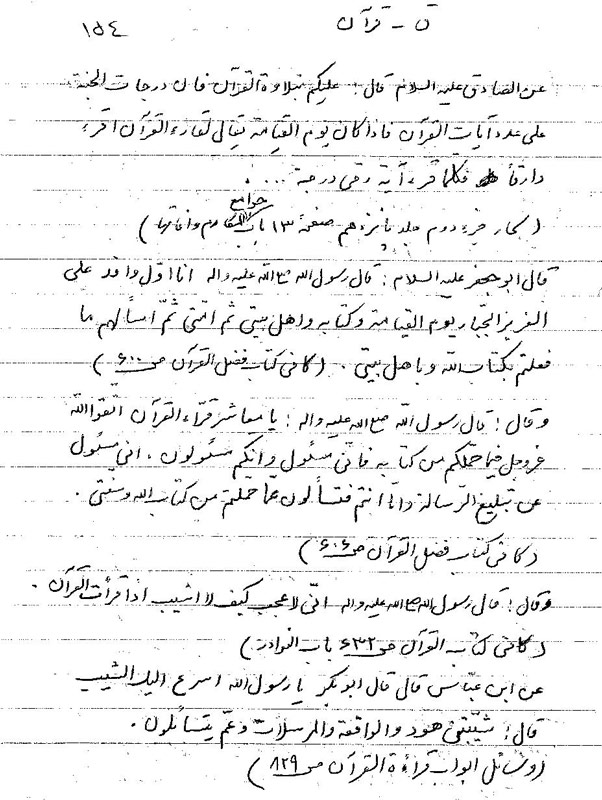 ق - قرآن ١٥٤
عن الصادق عليه السلام قال: عليكم بتلاوة القرآن فان درجات الجنة
على عدد آيات القرآن فاذا كان يوم القيامة يقال لقارء القرآن اقرء
وارقأ فكلما قرء آية رقى درجة ... .
(بحار جزء دوم جلد پانزدهم صفحهٔ ١٣ باب جوامع المكارم وآفاتها)
قال ابو جعفر عليه السلام: قال رسول الله صلى الله عليه واله انا اول وافد على
العزيز الجبّار يوم القيامة وكتابه واهل بيتي ثم امّتي ثمّ أسألهم ما
فعلتم بكتاب الله وباهل بيتي. (كافى كتاب فضل القرآن ص ٦٠٠)
وقال: قال رسول الله صلى الله عليه واله: يا معاشر قرّاء القرآن اتّقوا الله
عزوجل فيما حمّلكم من كتابه فانّي مسئول وانّكم مسئولون. انى مسئول
عن تبليغ الرّسالة وامّا انتم فتسألون عمّا حمّلتم من كتاب الله وسنّتى.
(كافى كتاب فضل القرآن ص ٦٠٦)
وقال: قال رسول الله صلى الله عليه واله انّى لاعجب كيف لا اشيب اذا قرأت القرآن.
(كافى كتاب القرآن ص ٦٣٢ باب النوادر)
عن ابن عبّاس قال قال ابو بكر يا رسول الله اسرع اليك الشيب
قال: شيّبتنى هود والواقعة والمرسلات وعمّ يتسائلون.
(وسائل ابواب قراءة القرآن ص ٨٢٩)